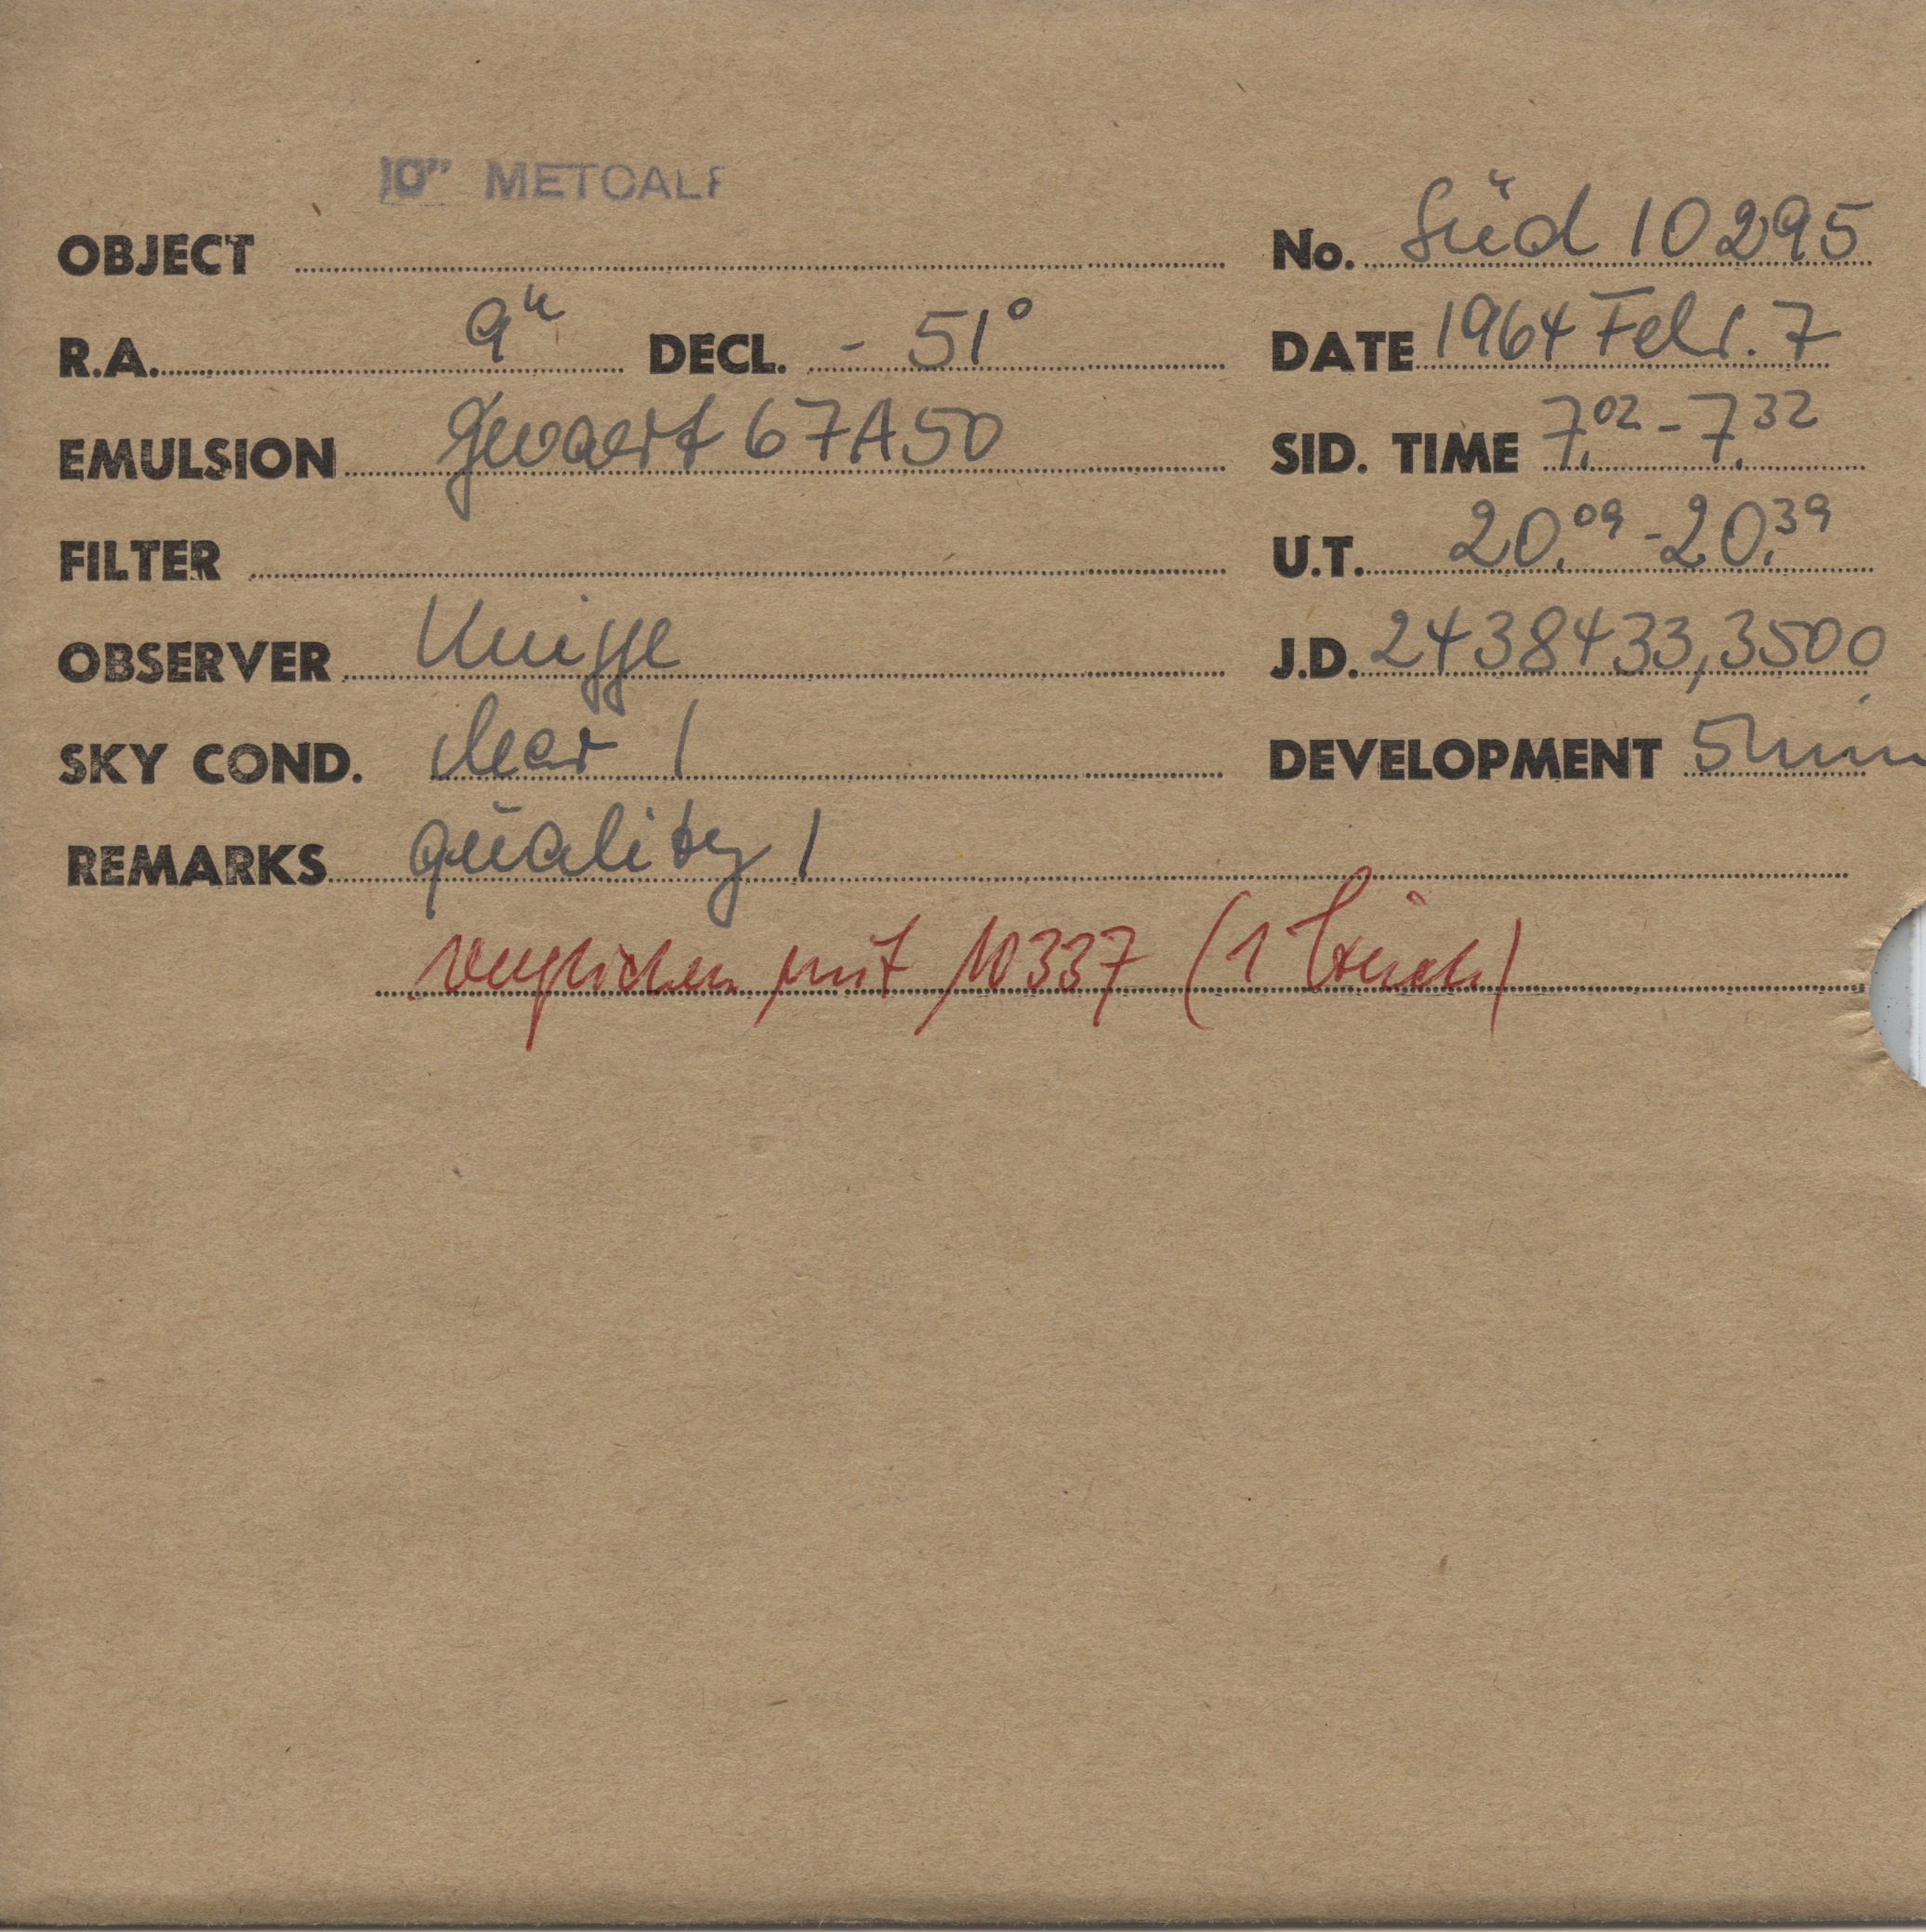 10" METCALF
OBJECT No. Süd 10295
R.A. 9h DECL. - 51° DATE 1964 Febr. 7
EMULSION Gevaert 67A50 SID. TIME 7.02 - 7.32
FILTER U.T. 20.09 - 20.39
OBSERVER Knigge J.D. 2438433,3500
SKY COND. clear 1 DEVELOPMENT 5 min
REMARKS quality 1
verglichen mit 10337 (1